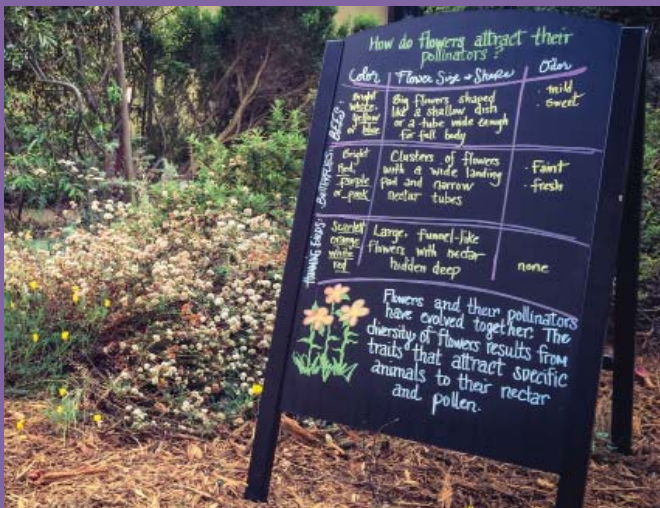 How do flowers attract their
pollinators?
Color Flower Size + Shape Odor
BEES:
Bright
white,
yellow
or blue
Big flowers shaped
like a shallow dish
or a tube wide enough
for full body
· mild
· sweet
BUTTERFLIES:
Bright
Red,
purple
or pink
Clusters of flowers
with a wide landing
pad and narrow
nectar tubes
· Faint
· fresh
HUMMING BIRDS:
Scarlet
orange
white
red
Large, funnel-like
flowers with nectar
hidden deep
none
Flowers and their pollinators
have evolved together. The
diversity of flowers results from
traits that attract specific
animals to their nectar
and pollen.